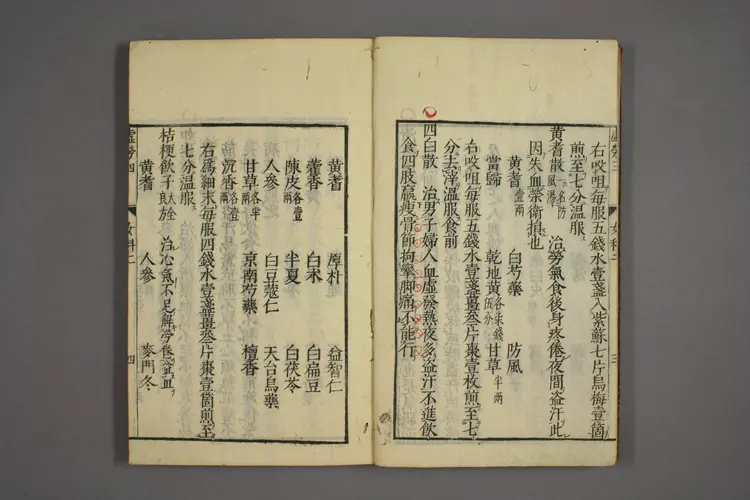 右㕮咀每服五錢水壹盞入紫蘇七片烏梅壹箇
煎至七分溫服
黃耆散 治勞氣食後身疼倦夜間盗汗此
因失血榮衛損也
黃耆壹兩 白芍藥 防風
當歸 乾地黃 甘草半兩
右㕮咀每服五錢水壹盞薑叁片棗壹枚煎至七
分去滓溫服食前
四白散 治男子婦人血虛發熱夜多盗汗不進飲
食四肢羸瘦骨節拘攣脚痛不能行
黃耆 厚朴 益智仁
藿香 白朮 白扁豆
陳皮各壹兩 半夏 白茯苓
人參 白豆蔻仁 天台烏藥
甘草各半兩 京南芍藥 檀香
沉香各壹兩
右爲細末每服四錢水壹盞薑叁片棗壹箇煎至
七分溫服
桔梗飲子 治心氣不足解勞倦益血
黃耆 人參 麥門冬
女科二
四